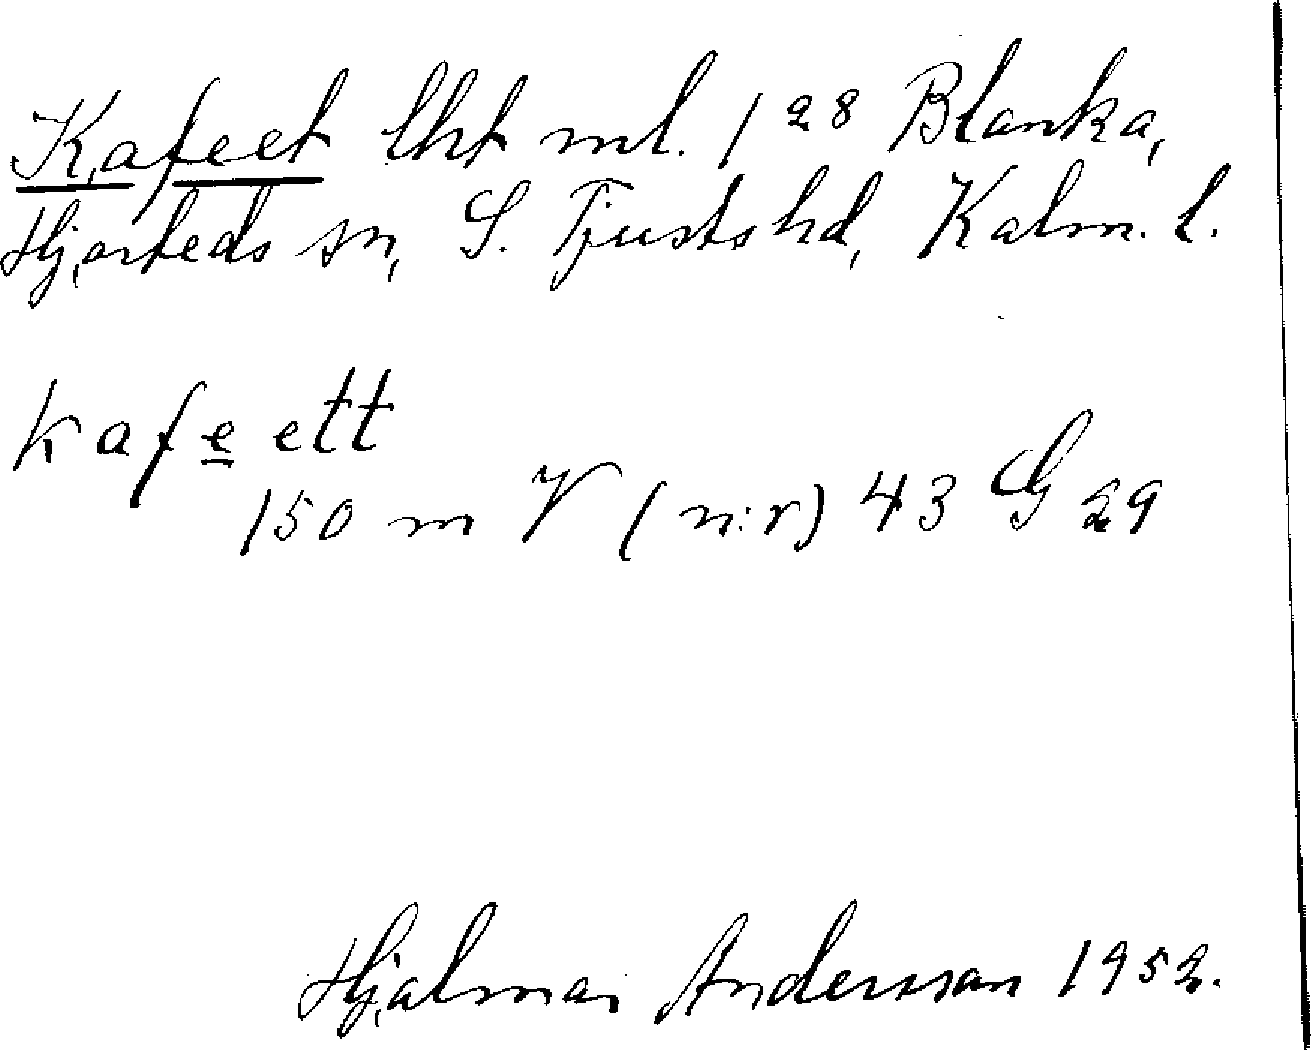 Kafeet lht ml. 1 28 Blanka,
Hjorteds sn, S. Tjusts hd, Kalm. l.
kafe ett
150 m V (n:r) 43 G 29
Hjalmar Andersson 1952.